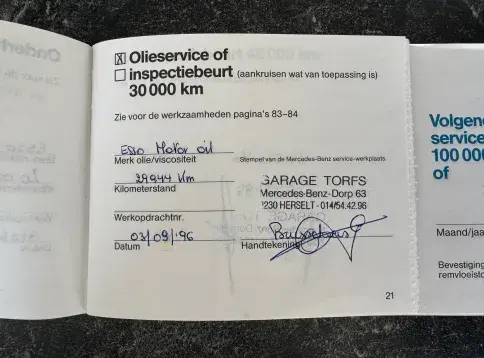 ☒ Olieservice of
☐ inspectiebeurt (aankruisen wat van toepassing is)
30 000 km
Zie voor de werkzaamheden pagina's 83–84
Esso Motor oil
Merk olie/viscositeit
Stempel van de Mercedes-Benz service-werkplaats
29944 km
Kilometerstand
GARAGE TORFS
Mercedes-Benz-Dorp 63
2230 HERSELT - 014/54.42.96
Werkopdrachtnr.
03/09/'96
Datum
Handtekening
21
Volgen
service
100 000
of
Maand/jaa
Bevestiging
remvloeisto